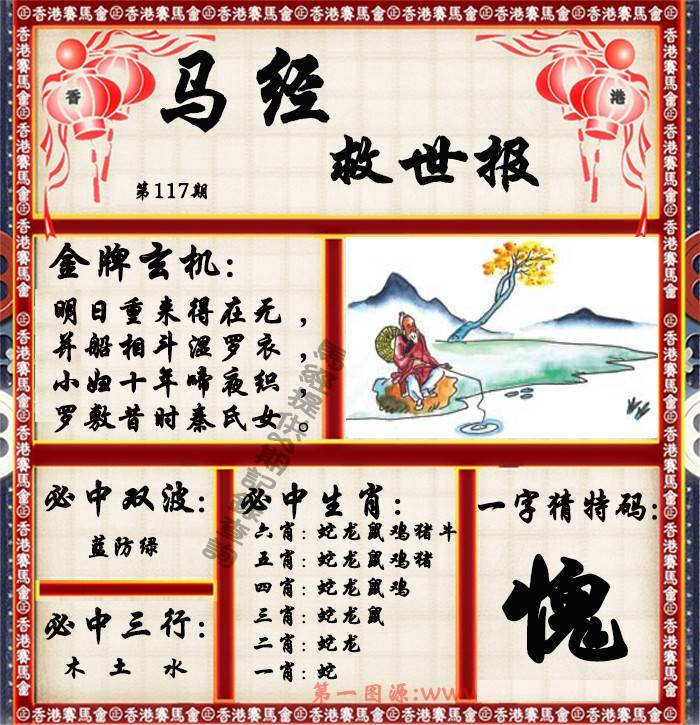 香港賽馬會
香
港
马经
救世报
第117期
金牌玄机:
明日重来得在无,
并船相斗湿罗衣,
小妇十年啼夜织,
罗敷昔时秦氏女。
必中双波:
蓝防绿
必中三行:
木 土 水
必中生肖:
六肖:蛇龙鼠鸡猪牛
五肖:蛇龙鼠鸡猪
四肖:蛇龙鼠鸡
三肖:蛇龙鼠
二肖:蛇龙
一肖:蛇
一字猜特码:
愧
第一图源:www